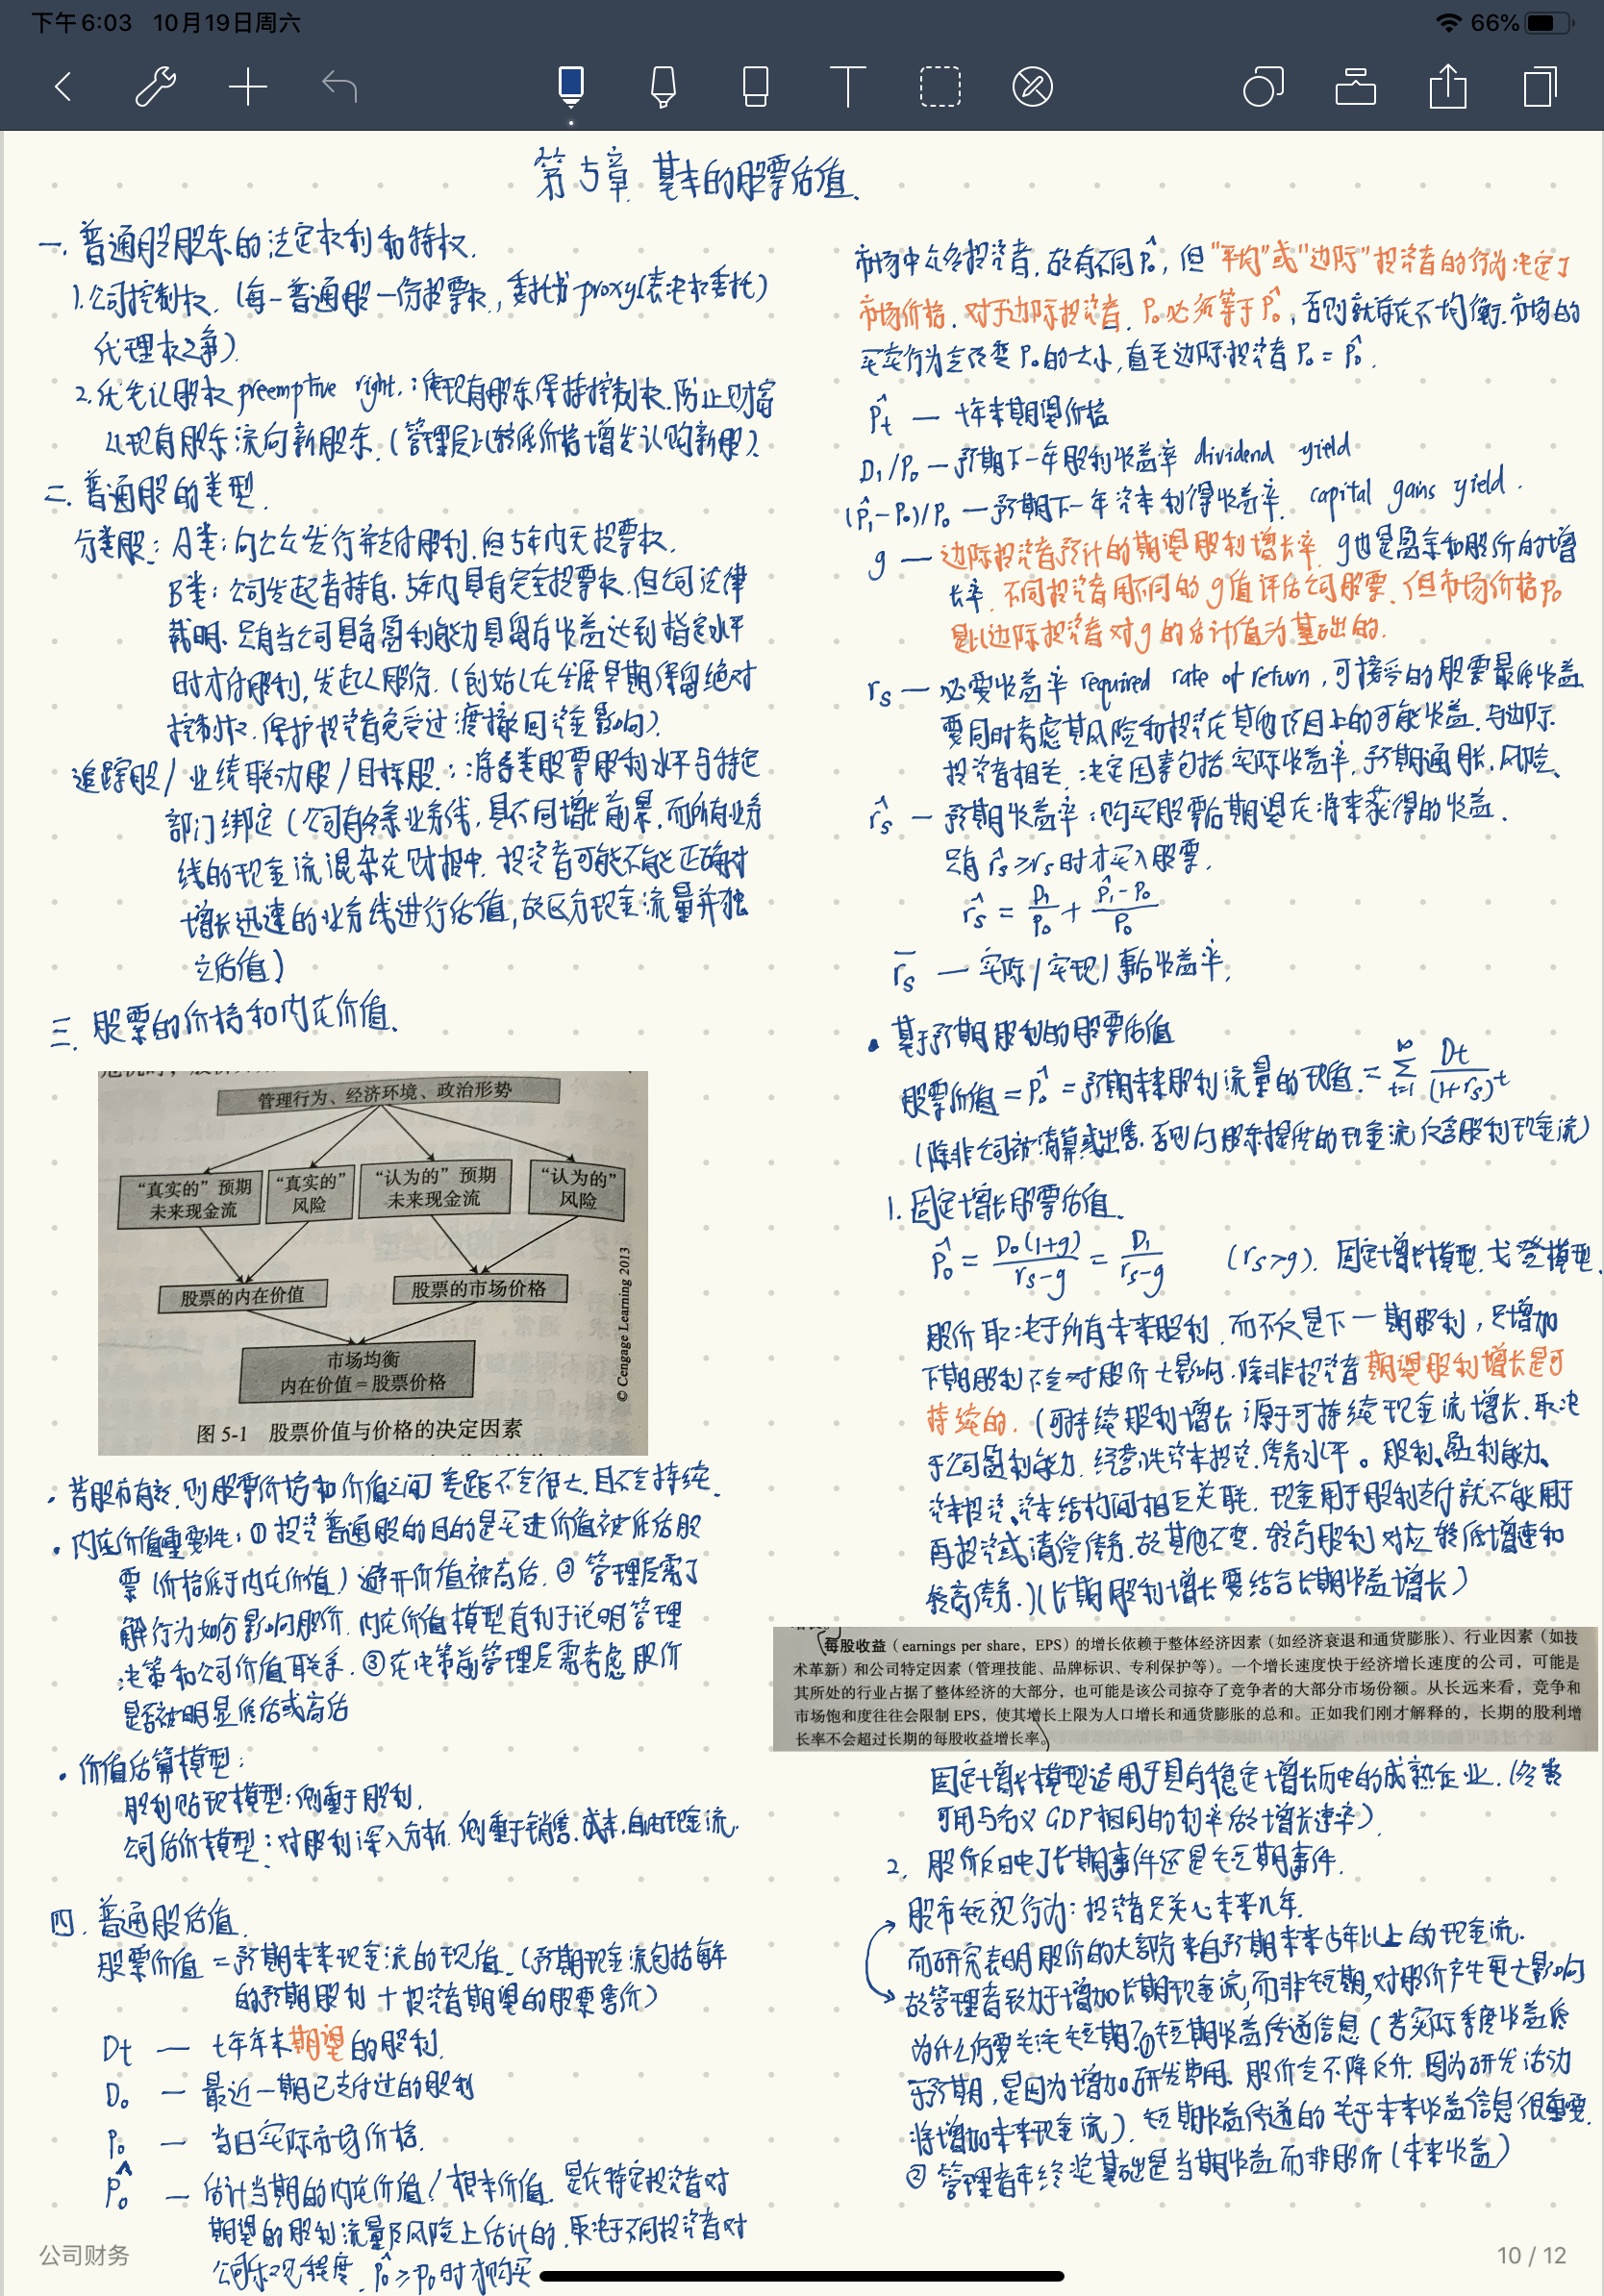 下午6:03 10月19日周六
66%
第5章 基本的股票估值.
一. 普通股股东的法定权利和特权.
1.公司控制权.(每一普通股一份投票权,委托书proxy(表决权委托)
代理权之争).
2.优先认股权 preemptive right.:使现有股东保持控制权.防止财富
从现有股东流向新股东.(管理层以较低价格增发认购新股)
二. 普通股的类型.
分类股: A类:向公众发行并支付股利.但5年内无投票权.
B类:公司发起者持有.5年内具有完全投票权.但公司法律
载明.只有当公司具备盈利能力且留存收益达到指定水平
时才付股利,发起人股份.(创始人在发展早期保留绝对
控制权.保护投资者免受过渡 影响)
追踪股/业绩联动股/目标股:将各类股票股利水平与特定
部门绑定(公司有多条业务线,具不同增长前景.而所有业务
线的现金流混杂在财报中.投资者可能不能正确对
增长迅速的业务线进行估值,故区分现金流量并独
立估值)
三. 股票的价格和内在价值.
管理行为、经济环境、政治形势
“真实的”预期 “真实的” “认为的”预期 “认为的”
未来现金流 风险 未来现金流 风险
股票的内在价值 股票的市场价格
市场均衡
内在价值=股票价格
© Cengage Learning 2013
图 5-1 股票价值与价格的决定因素
· 若股市有效.则股票价格和价值之间差距不会很大.且不会持续.
· 内在价值重要性:① 投资普通股的目的是买进价值被低估股
票(价格低于内在价值)避开价值被高估.② 管理层需了
解行为如何影响股价.内在价值模型有利于说明管理
决策和公司价值联系.③在决策前管理层需考虑股价
是否被明显低估或高估
· 价值估算模型:
股利贴现模型:侧重于股利.
公司估价模型:对股利深入分析.侧重于销售.成本.自由现金流.
四. 普通股估值.
股票价值 = 预期未来现金流的现值.(预期现金流包括每年
的预期股利 + 投资者期望的股票售价)
Dt — t年年末期望的股利.
D₀ — 最近一期已支付过的股利
P₀ — 当日实际市场价格.
P̂₀ — 估计当期的内在价值/根本价值.是在特定投资者对
期望的股利流量及风险上估计的.取决于不同投资者对
公司乐观程度.P̂₀≥P₀时才购买
市场中众多投资者.故有不同P̂₀,但“平均”或“边际”投资者的行为决定了
市场价格.对于边际投资者.P₀必须等于P̂₀,否则就存在不均衡.市场的
买卖行为会改变P₀的大小,直至边际投资者P₀ = P̂₀.
P̂t — t年末期望价格
D₁/P₀ — 预期下一年股利收益率 dividend yield
(P̂₁-P₀)/P₀ — 预期下一年资本利得收益率. capital gains yield.
g — 边际投资者预计的期望股利增长率.g也是盈余和股价的增
长率.不同投资者用不同的g值评估公司股票.但市场价格P₀
是以边际投资者对g的估计值为基础的.
rs — 必要收益率 required rate of return,可接受的股票最低收益
要同时考虑其风险和投资在其他项目上的可能收益.与边际
投资者相关.决定因素包括实际收益率.预期通胀.风险.
r̂s — 预期收益率:购买股票后期望在将来获得的收益.
只有r̂s≥rs时才买入股票.
r̂s = D₁/P₀ + (P̂₁-P₀)/P₀
r̄s — 实际/实现/事后收益率.
· 基于预期股利的股票估值
股票价值 = P̂₀ = 预期未来股利流量的现值. = ∑(t=1→∞) Dt/(1+rs)^t
(除非公司被清算或出售.否则向股东提供的现金流仅含股利现金流)
1. 固定增长股票估值.
P̂₀ = D₀(1+g)/(rs-g) = D₁/(rs-g) (rs>g). 固定增长模型.戈登模型.
股价取决于所有未来股利.而不仅是下一期股利,只增加
下期股利不会对股价大影响.除非投资者期望股利增长是可
持续的.(可持续股利增长源于可持续现金流增长.取决
于公司盈利能力.经营性资本投资.债务水平。股利、盈利能力、
资本投资、资本结构间相互关联.现金用于股利支付就不能用于
再投资或清偿债务.故其他不变.较高股利对应较低增速和
较高债务.)(长期股利增长要结合长期收益增长)
每股收益(earnings per share,EPS)的增长依赖于整体经济因素(如经济衰退和通货膨胀)、行业因素(如技
术革新)和公司特定因素(管理技能、品牌标识、专利保护等)。一个增长速度快于经济增长速度的公司,可能是
其所处的行业占据了整体经济的大部分,也可能是该公司掠夺了竞争者的大部分市场份额。从长远来看,竞争和
市场饱和度往往会限制 EPS,使其增长上限为人口增长和通货膨胀的总和。正如我们刚才解释的,长期的股利增
长率不会超过长期的每股收益增长率。
固定增长模型适用于具有稳定增长历史的成熟企业.(
可用与名义GDP相同的利率估增长速率).
2. 股价反映了长期事件还是短期事件.
股市短视行为:投资者只关心未来几年.
而研究表明股价的大部分来自预期未来5年以上的现金流.
故管理者致力于增加长期现金流,而非短期,对股价产生更大影响
为什么仍要关注短期?①短期收益传递信息(若实际季度收益低
于预期,是因为增加研发费用.股价会不降反升.因为研发活动
将增加未来现金流).短期收益传递的关于未来收益信息很重要.
② 管理者年终奖基础是当期收益而非股价(未来收益)
公司财务
10 / 12